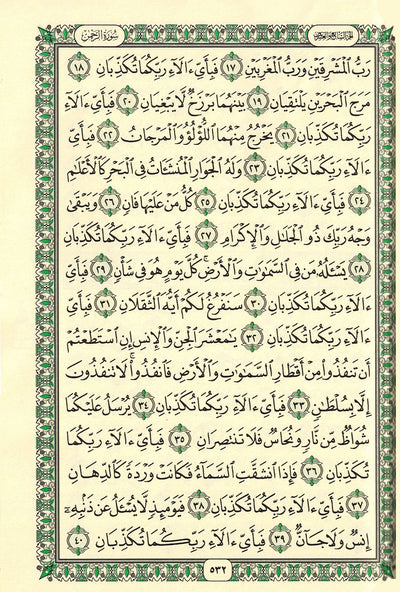 سُورَةُ الرَّحْمٰن
الجزء السابع والعشرون
رَبُّ الْمَشْرِقَيْنِ وَرَبُّ الْمَغْرِبَيْنِ ١٧ فَبِأَيِّ ءَالَآءِ رَبِّكُمَا تُكَذِّبَانِ ١٨
مَرَجَ الْبَحْرَيْنِ يَلْتَقِيَانِ ١٩ بَيْنَهُمَا بَرْزَخٌ لَّا يَبْغِيَانِ ٢٠ فَبِأَيِّ ءَالَآءِ
رَبِّكُمَا تُكَذِّبَانِ ٢١ يَخْرُجُ مِنْهُمَا اللُّؤْلُؤُ وَالْمَرْجَانُ ٢٢ فَبِأَيِّ
ءَالَآءِ رَبِّكُمَا تُكَذِّبَانِ ٢٣ وَلَهُ الْجَوَارِ الْمُنشَـَٔاتُ فِي الْبَحْرِ كَالْأَعْلَٰمِ
٢٤ فَبِأَيِّ ءَالَآءِ رَبِّكُمَا تُكَذِّبَانِ ٢٥ كُلُّ مَنْ عَلَيْهَا فَانٍ ٢٦ وَيَبْقَىٰ
وَجْهُ رَبِّكَ ذُو الْجَلَٰلِ وَالْإِكْرَامِ ٢٧ فَبِأَيِّ ءَالَآءِ رَبِّكُمَا تُكَذِّبَانِ
٢٨ يَسْـَٔلُهُ مَن فِي السَّمَٰوَٰتِ وَالْأَرْضِ ۚ كُلَّ يَوْمٍ هُوَ فِي شَأْنٍ ٢٩ فَبِأَيِّ
ءَالَآءِ رَبِّكُمَا تُكَذِّبَانِ ٣٠ سَنَفْرُغُ لَكُمْ أَيُّهَ الثَّقَلَانِ ٣١ فَبِأَيِّ
ءَالَآءِ رَبِّكُمَا تُكَذِّبَانِ ٣٢ يَٰمَعْشَرَ الْجِنِّ وَالْإِنسِ إِنِ اسْتَطَعْتُمْ
أَن تَنفُذُوا مِنْ أَقْطَارِ السَّمَٰوَٰتِ وَالْأَرْضِ فَانفُذُوا ۚ لَا تَنفُذُونَ
إِلَّا بِسُلْطَٰنٍ ٣٣ فَبِأَيِّ ءَالَآءِ رَبِّكُمَا تُكَذِّبَانِ ٣٤ يُرْسَلُ عَلَيْكُمَا
شُوَاظٌ مِّن نَّارٍ وَنُحَاسٌ فَلَا تَنتَصِرَانِ ٣٥ فَبِأَيِّ ءَالَآءِ رَبِّكُمَا
تُكَذِّبَانِ ٣٦ فَإِذَا انشَقَّتِ السَّمَآءُ فَكَانَتْ وَرْدَةً كَالدِّهَانِ
٣٧ فَبِأَيِّ ءَالَآءِ رَبِّكُمَا تُكَذِّبَانِ ٣٨ فَيَوْمَئِذٍ لَّا يُسْـَٔلُ عَن ذَنۢبِهِۦٓ
إِنسٌ وَلَا جَآنٌّ ٣٩ فَبِأَيِّ ءَالَآءِ رَبِّكُمَا تُكَذِّبَانِ ٤٠
٥٣٢